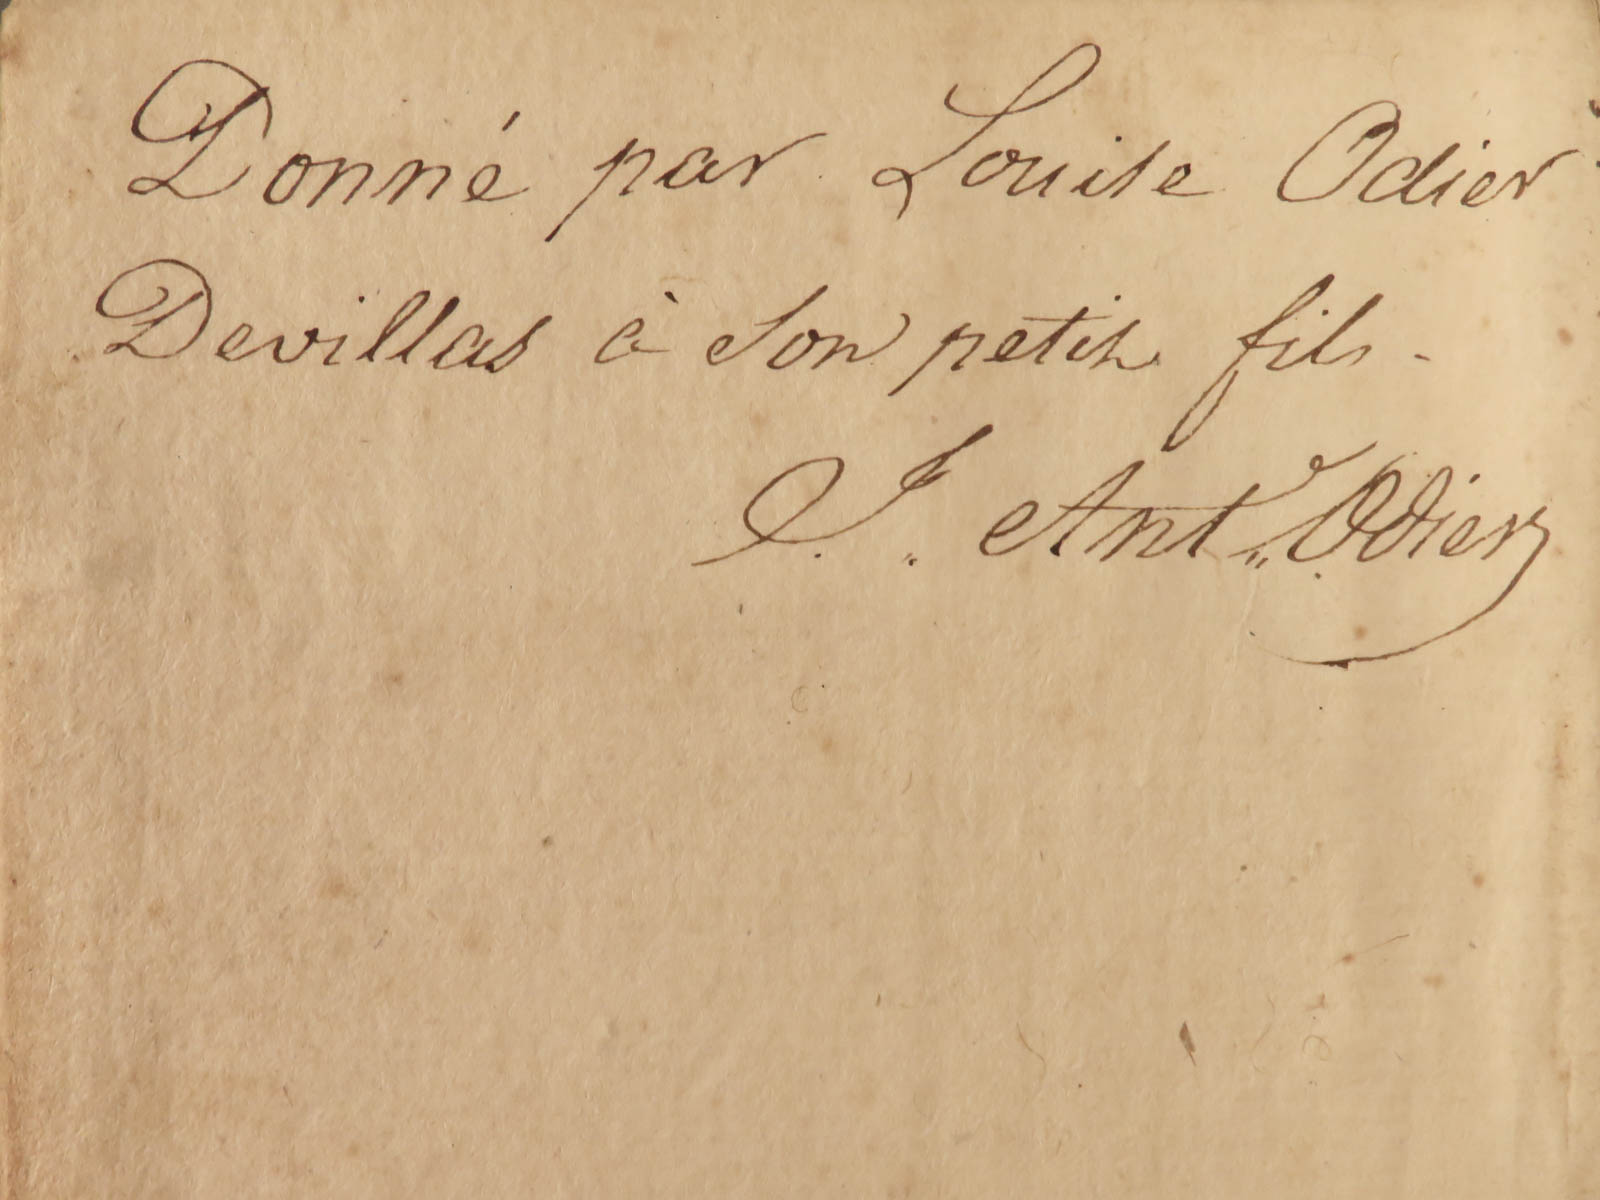 Donné par Louise Odier
Devillas à son petit fils.
J. Ant.r Odier